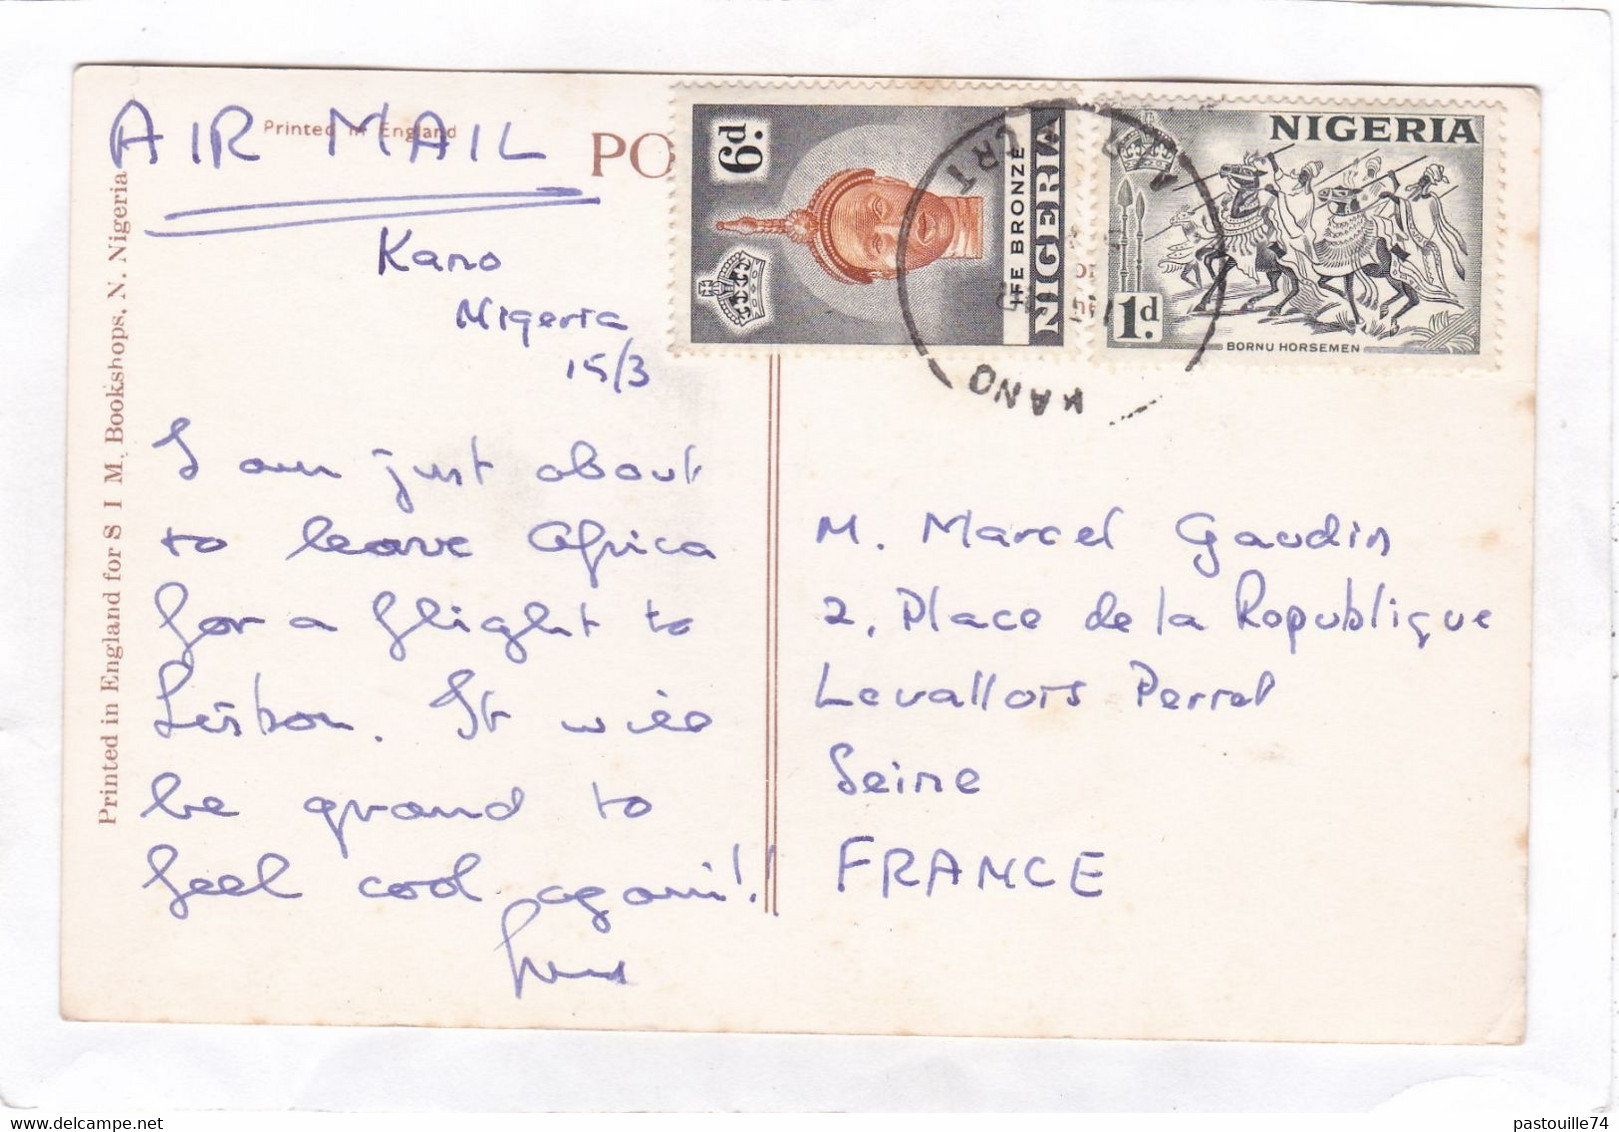 AIR MAIL
Printed in England
PO
Kano
Nigeria
15/3
I am just about
to leave Africa
for a flight to
Lisbon. It will
be grand to
feel cool again!!
Printed in England for S I M. Bookshops, N. Nigeria
6d.
IFE BRONZE
NIGERIA
NIGERIA
1d.
BORNU HORSEMEN
KANO
M. Marcel Gaudin
2, Place de la Republique
Levallois Perret
Seine
FRANCE
pastouille74